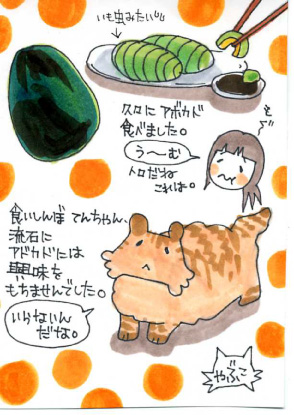 いも虫みたいww
久々にアボカド
食べました。
う〜む
トロだね
これは。
食いしんぼ てんちゃん、
流石に
アボカドには
興味を
もちませんでした。
いらないん
だな。
やぶこ